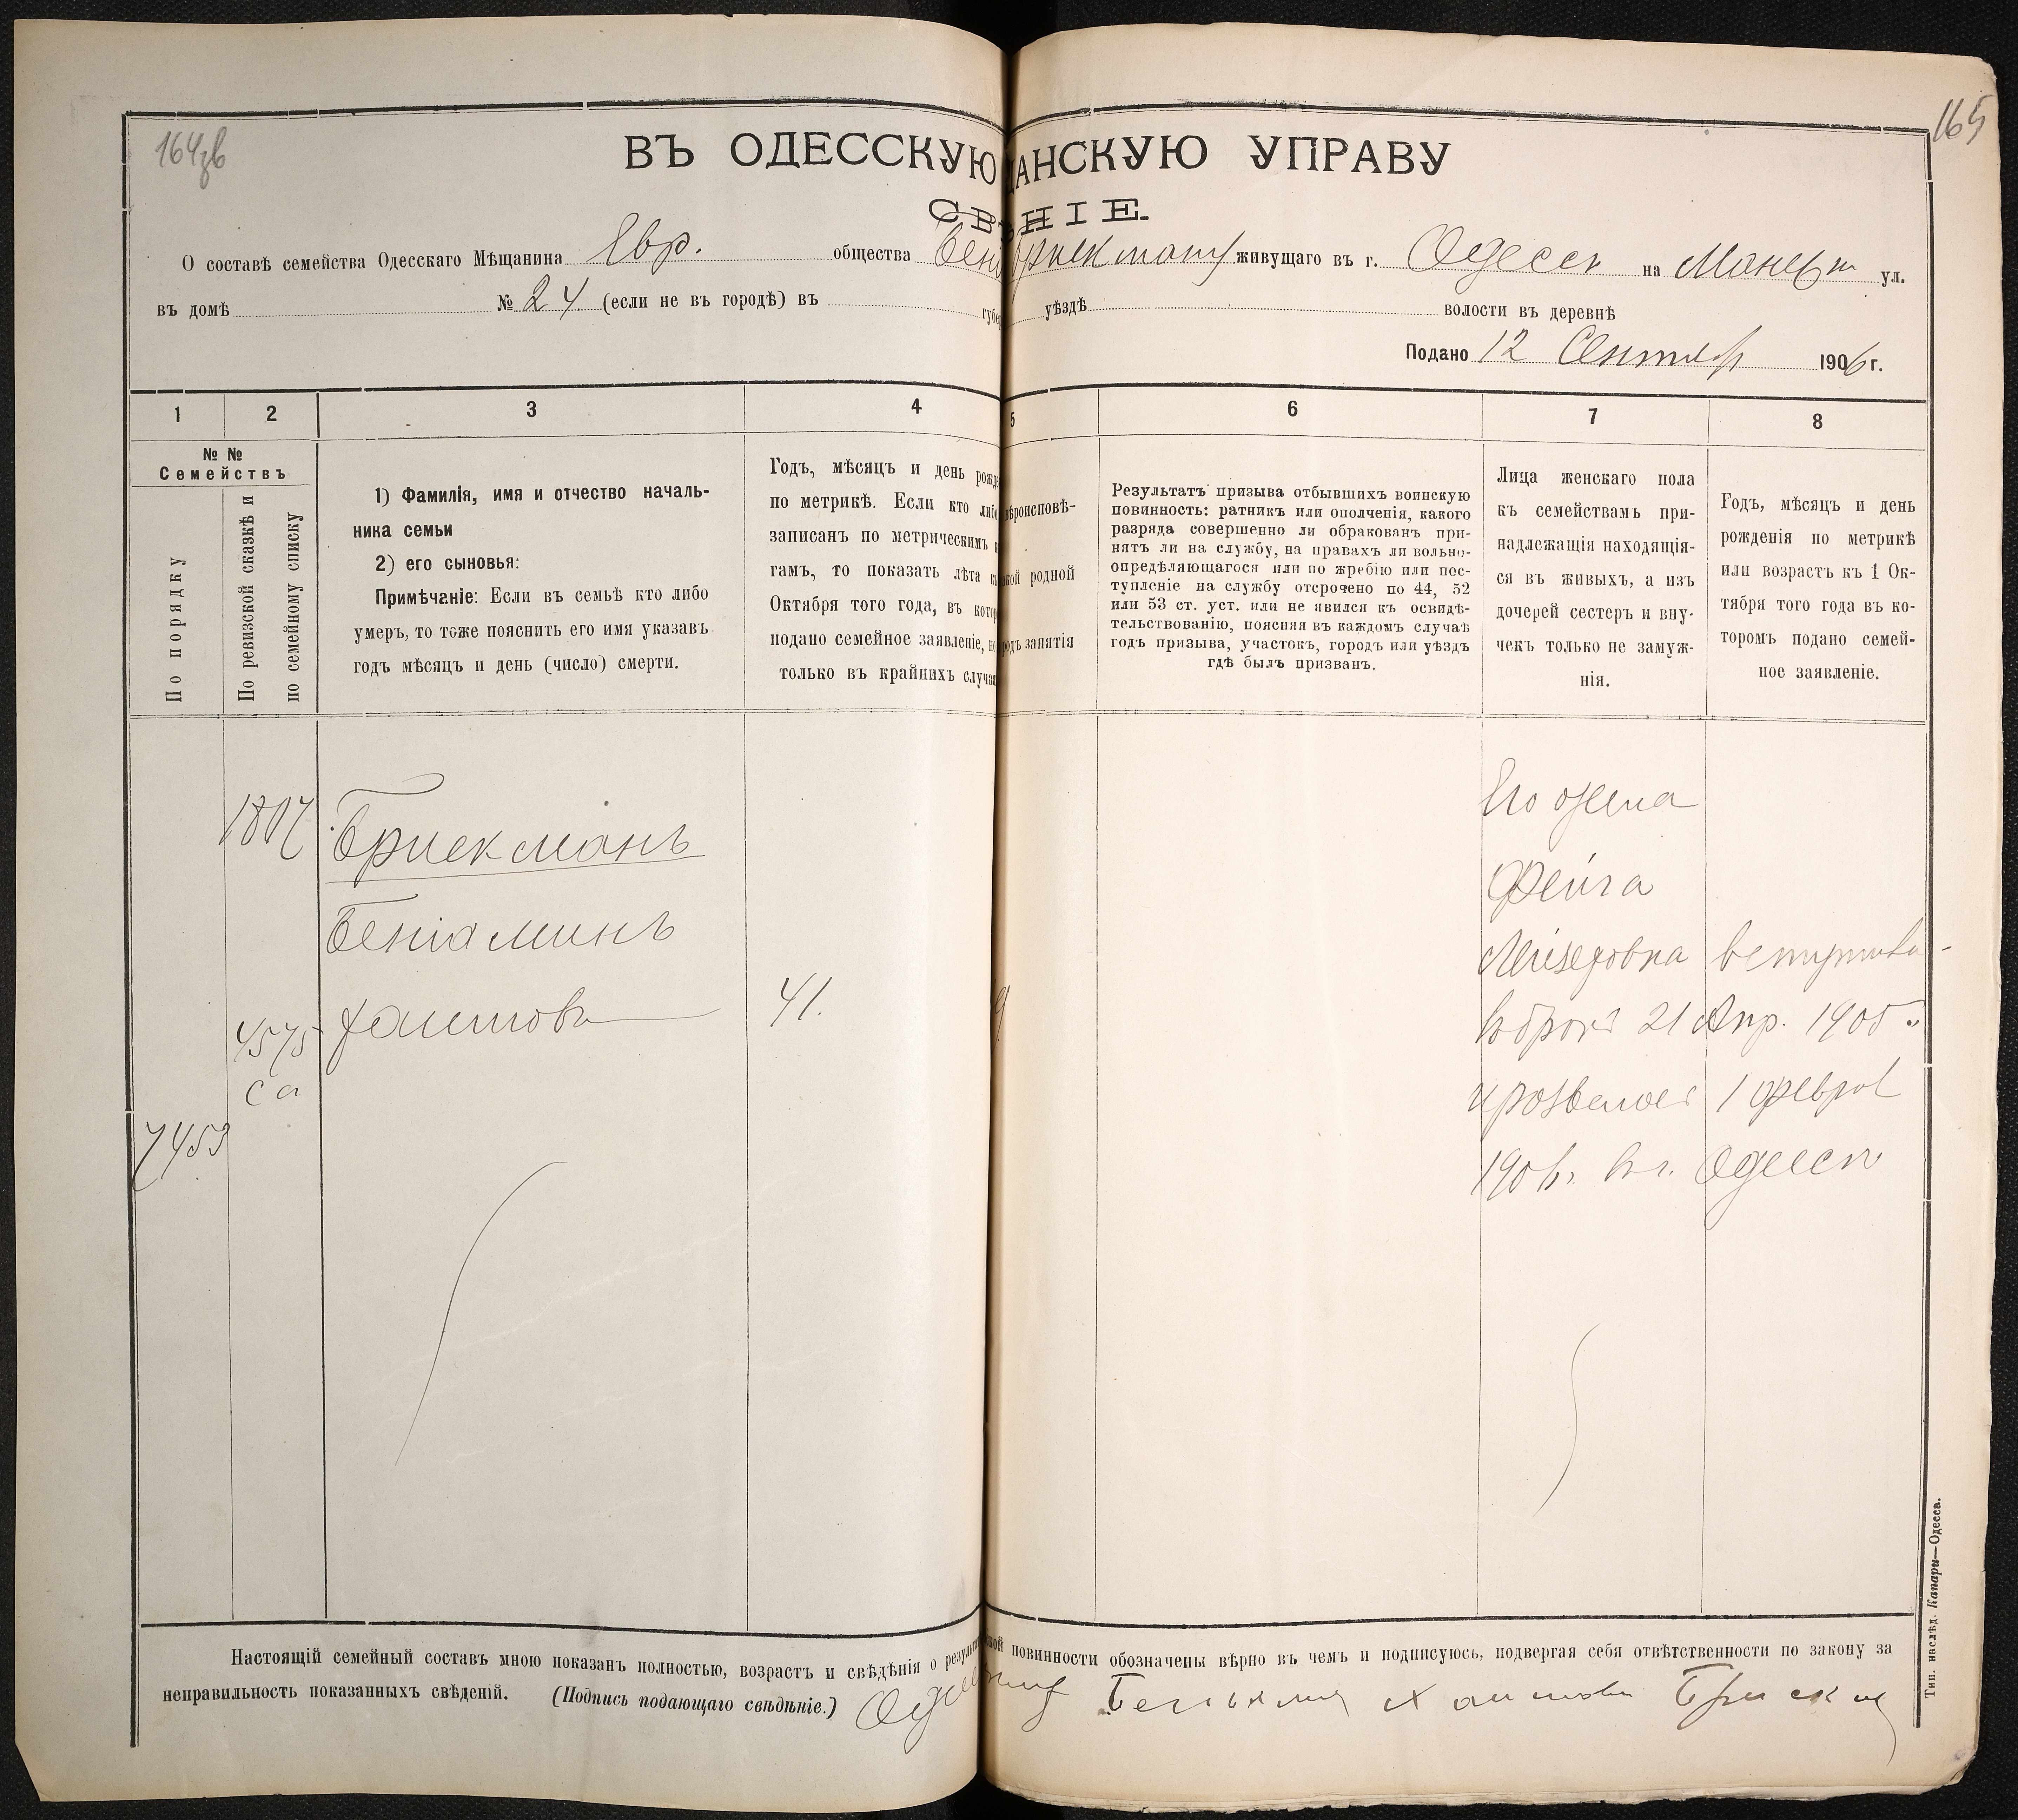 164зв
165
ВЪ ОДЕССКУЮ ЩАНСКУЮ УПРАВУ
СВ НІЕ.
О составѣ семейства Одесскаго Мѣщанина Евр. общества живущаго въ г. Одессѣ на ул.
въ домѣ № 24 (если не въ городѣ) въ губер уѣздѣ волости въ деревнѣ
Подано 12 Сентября 1906 г.
1 2 3 4 5 6 7 8
№ №
Семействъ
По порядку
По ревизской сказкѣ и
по семейному списку
1) Фамилія, имя и отчество началь-
ника семьи
2) его сыновья:
Примѣчаніе: Если въ семьѣ кто либо
умеръ, то тоже пояснить его имя указавъ
годъ мѣсяцъ и день (число) смерти.
Годъ, мѣсяцъ и день рожде
по метрикѣ. Если кто либо
записанъ по метрическимъ к
гамъ, то показать лѣта къ
Октября того года, въ котор
подано семейное заявленіе, но
только въ крайнихъ случая
ѣроисповѣ-
кой родной
одъ занятія
Результатъ призыва отбывшихъ воинскую
повинность: ратникъ или ополченія, какого
разряда совершенно ли обракованъ при-
нятъ ли на службу, на правахъ ли вольно-
опредѣляющагося или по жребію или пос-
тупленіе на службу отсрочено по 44, 52
или 53 ст. уст. или не явился къ освидѣ-
тельствованію, поясняя въ каждомъ случаѣ
годъ призыва, участокъ, городъ или уѣздъ
гдѣ былъ призванъ.
Лица женскаго пола
къ семействамъ при-
надлежащія находящія-
ся въ живыхъ, а изъ
дочерей сестеръ и вну-
чекъ только не замуж-
нія.
Годъ, мѣсяцъ и день
рожденія по метрикѣ
или возрастъ къ 1 Ок-
тября того года въ ко-
торомъ подано семей-
ное заявленіе.
1807
Брискманъ
Беніаминъ
Хаимовъ
41.
4575
са
7453
Его жена
Фейга
вступила
въ бракъ 21 Апр. 1905
и развелась 1 Феврал
1906 г. въ г. Одессѣ
Настоящій семейный составъ мною показанъ полностью, возрастъ и свѣдѣнія о результ ской повинности обозначены вѣрно въ чемъ и подписуюсь, подвергая себя отвѣтственности по закону за
неправильность показанныхъ свѣденій. (Подпись подающаго свѣдѣніе.)
Тип. наслѣд. Капари—Одесса.